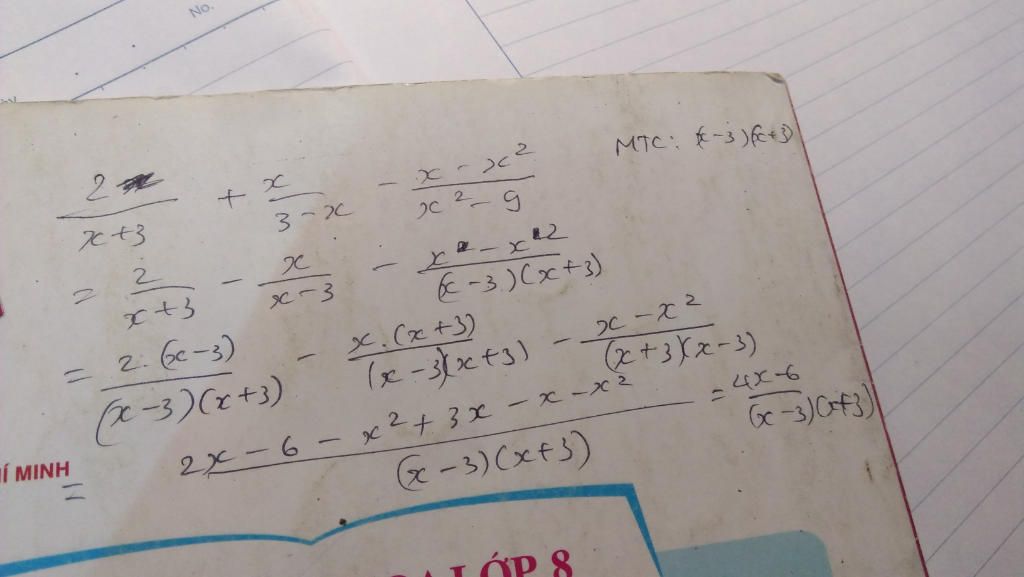 No.
MTC: (x-3)(x+3)
2/(x+3) + x/(3-x) - (x-x²)/(x²-9)
= 2/(x+3) - x/(x-3) - (x-x²)/((x-3)(x+3))
= 2.(x-3)/((x-3)(x+3)) - x.(x+3)/((x-3)(x+3)) - (x-x²)/((x+3)(x-3))
= (2x-6-x²+3x-x-x²)/((x-3)(x+3)) = (4x-6)/((x-3)(x+3))
MINH
LỚP 8